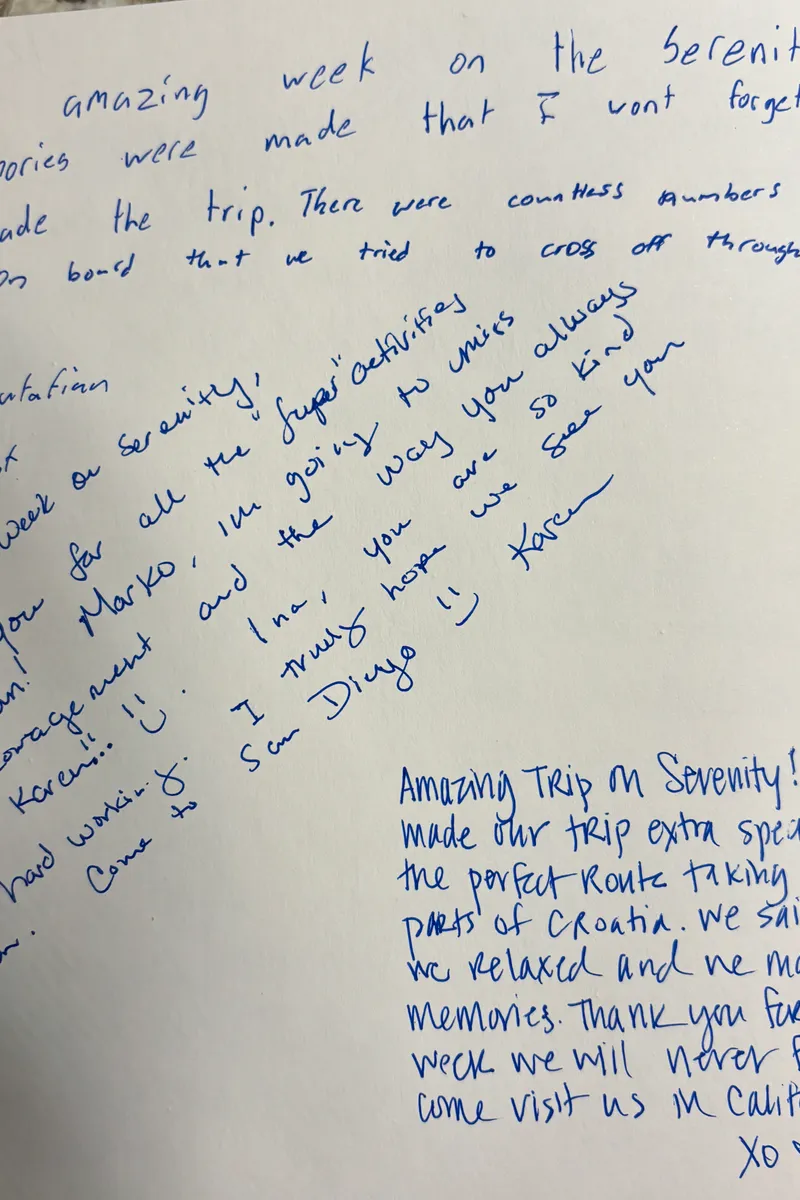 amazing week on the Serenit
mories were made that I wont forget
ade the trip. There were countless numbers
on board that we tried to cross off through
week on Serenity,
you for all the "super" activities
an! Marko, im going to miss
ouragement and the way you always
Karen!! Ina, you are so kind
hard working. I truly hope we see you
Come to San Diego Karen
Amazing Trip on Serenity!
made our trip extra spec
the perfect Route taking
parts of Croatia. We sai
we relaxed and we ma
memories. Thank you for
week we will never f
come visit us in Calif
XO